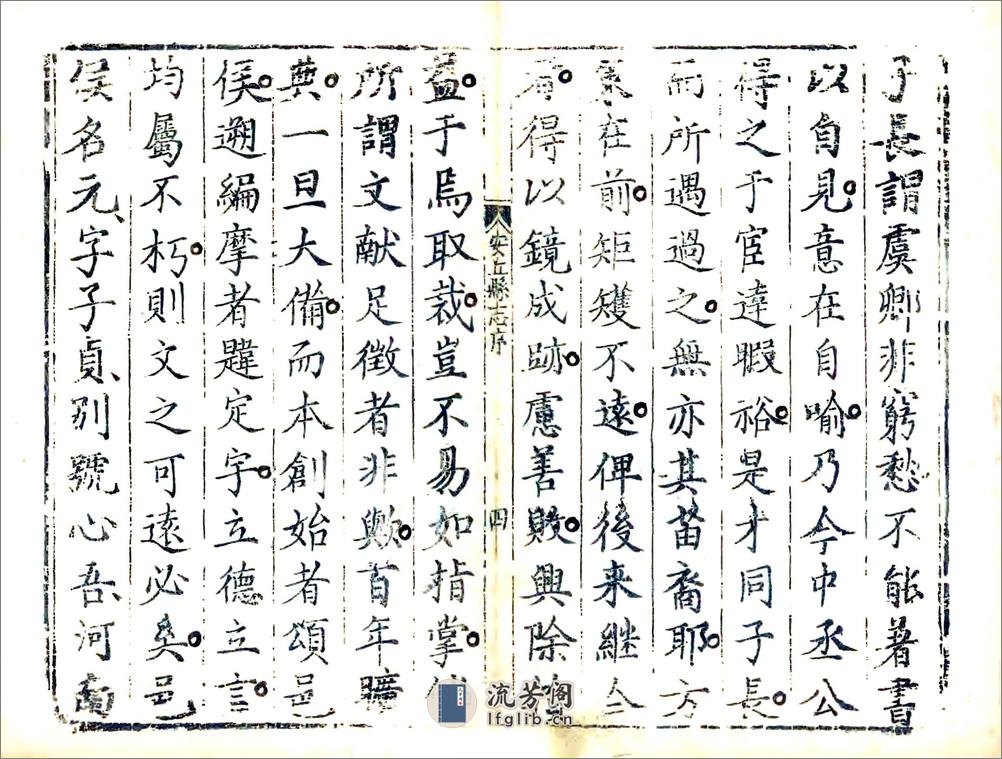 子長謂虞卿非窮愁不能著書
以自見意在自喻乃今中丞公
得之于宦達暇裕是才同子長
而所遇過之無亦其苗裔耶方
在前矩矱不遠俾後来継
得以鏡成跡慮善敗興除
安丘縣志序
四
蓋于焉取裁豈不易如指掌
所謂文献足徵者非歟百年曠
典一旦大備而本創始者頌邑
侯遡編摩者韙定字立德立言
均屬不朽則文之可遠必矣邑
侯名元字子貞別號心吾河南
流芳阁
lfglib.cn